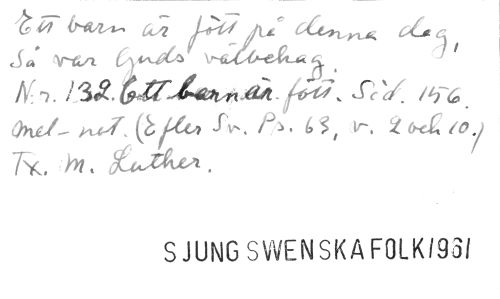 Ett barn är fött på denna dag,
Så var Guds välbehag.
Nr. 132. Ett barn är fött. Sid. 156.
Mel-not. (Efter Sv. Ps. 63, v. 2 och 10.)
Tx. M. Luther.
SJUNG SWENSKA FOLK/1961